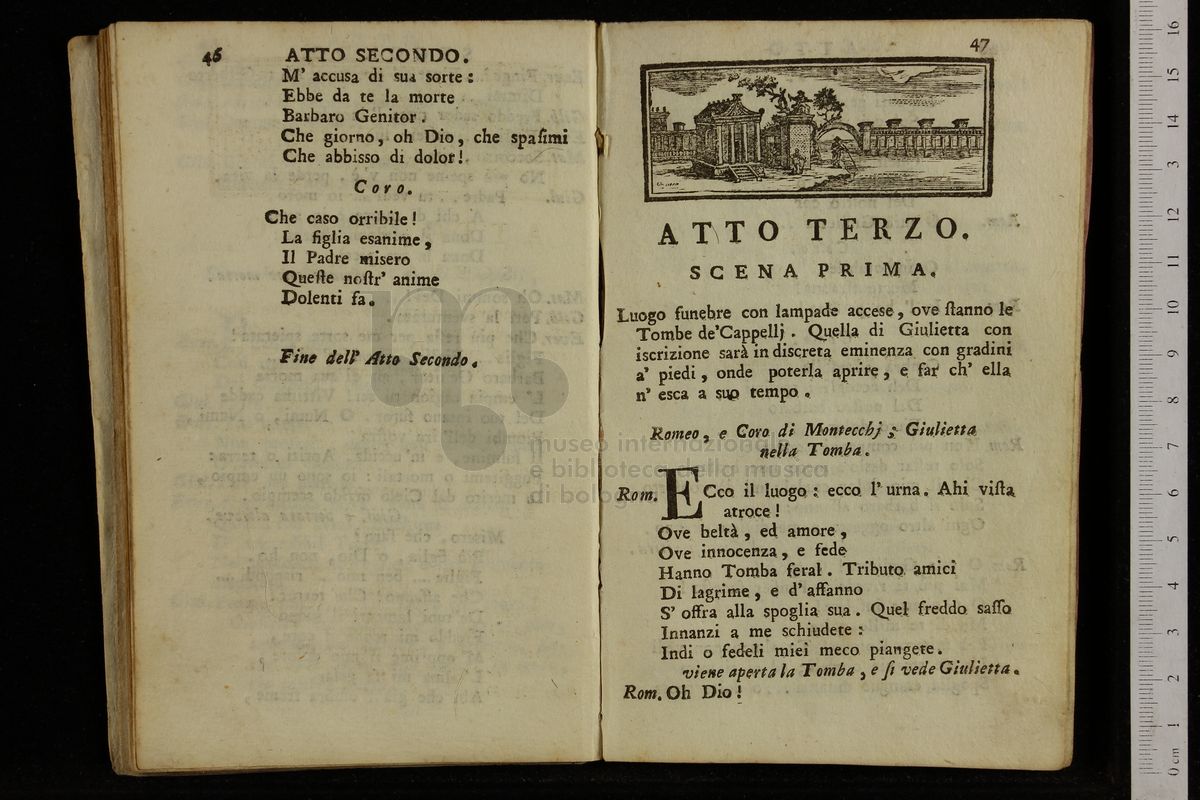 46 ATTO SECONDO.
M' accusa di sua sorte:
Ebbe da te la morte
Barbaro Genitor.
Che giorno, oh Dio, che spaſimi
Che abbisso di dolor!
Coro.
Che caso orribile!
La figlia esanime,
Il Padre misero
Queſte noſtr' anime
Dolenti fa.
Fine dell' Atto Secondo.
47
ATTO TERZO.
SCENA PRIMA.
Luogo funebre con lampade accese, ove ſtanno le
Tombe de'Cappellj. Quella di Giulietta con
iscrizione sarà in discreta eminenza con gradini
a' piedi, onde poterla aprire, e far ch' ella
n' esca a suo tempo.
Romeo, e Coro di Montecchj; Giulietta
nella Tomba.
Rom. ECco il luogo: ecco l' urna. Ahi viſta
atroce!
Ove beltà, ed amore,
Ove innocenza, e fede
Hanno Tomba feral. Tributo amici
Di lagrime, e d' affanno
S' offra alla spoglia sua. Quel freddo saſſo
Innanzi a me schiudete:
Indi o fedeli miei meco piangete.
viene aperta la Tomba, e ſi vede Giulietta.
Rom. Oh Dio!
museo internazionale
e biblioteca della musica
di bologna
16
15
14
13
12
11
10
9
8
7
6
5
4
3
2
1
0 cm